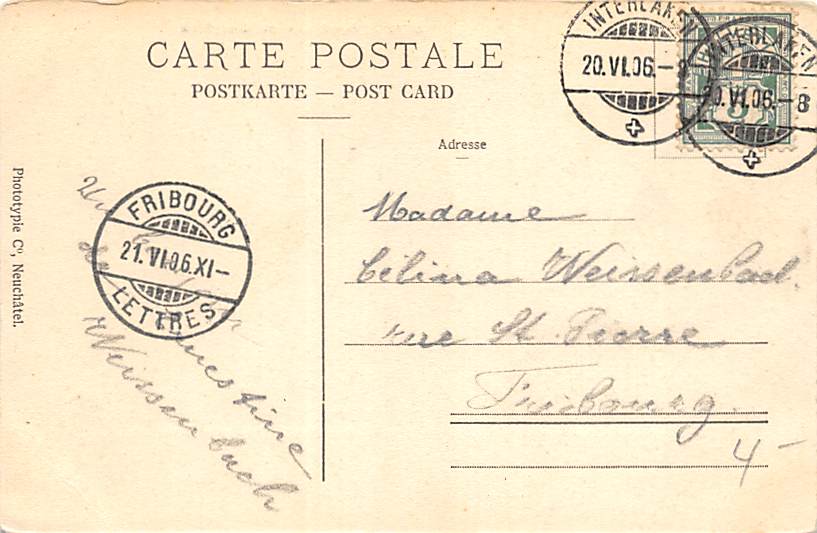 CARTE POSTALE
POSTKARTE — POST CARD
INTERLAKEN
20.VI.06.-8
INTERLAKEN
20.VI.06.-8
5
Adresse
Madame
Célina Weissenbach
rue St. Pierre
Fribourg.
4-
FRIBOURG
21.VI.06.XI-
LETTRES
Un
de
Weissenbach
Phototypie Co, Neuchâtel.